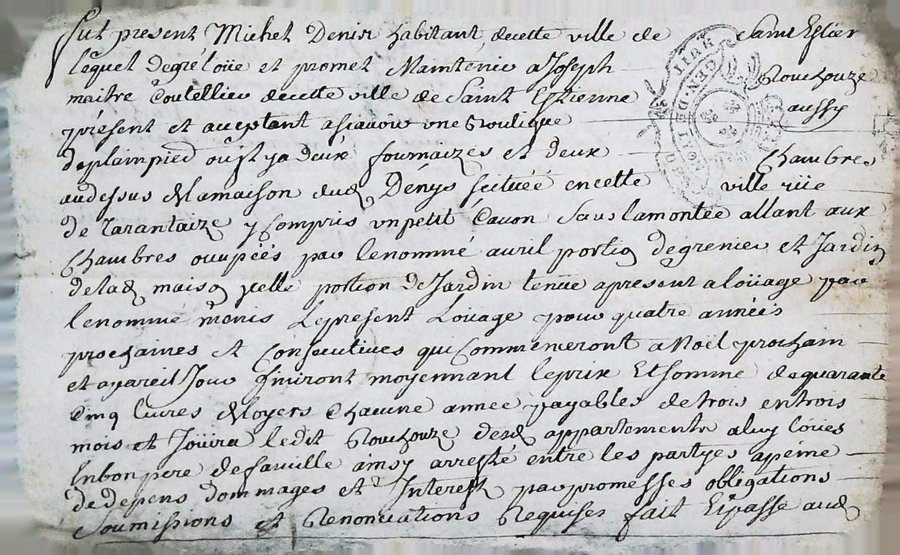 fut present Michel Denis habitant decette ville de Saint Estier
lequel degré loüe et promet Maintenir a Joseph
Rouchouze
maitre Coutellier decette ville de Saint Estienne aussy
présent et acceptant ascavoir une Boutique
deplainpied ou il ya deux fournaizes et deux Chambres
audessus de lamaison dud Denys scituée encette ville rüe
de Tarantaize y Compris un petit Cavon sous lamontée allant aux
Chambres occupées par lenommé avril portion de grenier et Jardin
delad maison ycelle portion de Jardin tenüe apresent a loüage par
lenommé monis Lepresent Loüage pour quatre années
prochaines et Consecutives qui Commenceront a Noel prochain
et apareil Jour finiront moyennant leprix Et somme de quarante
Cinq livres de loyers Chacune année payables de trois entrois
mois et Joüira ledit Rouchouze desd appartements aluy loües
Enbon pere defamille ainsy arresté entre les partyes apeine
de depens dommages et Interest par promesses obligations
soumissions et Renonciations Requises fait Et passe aud